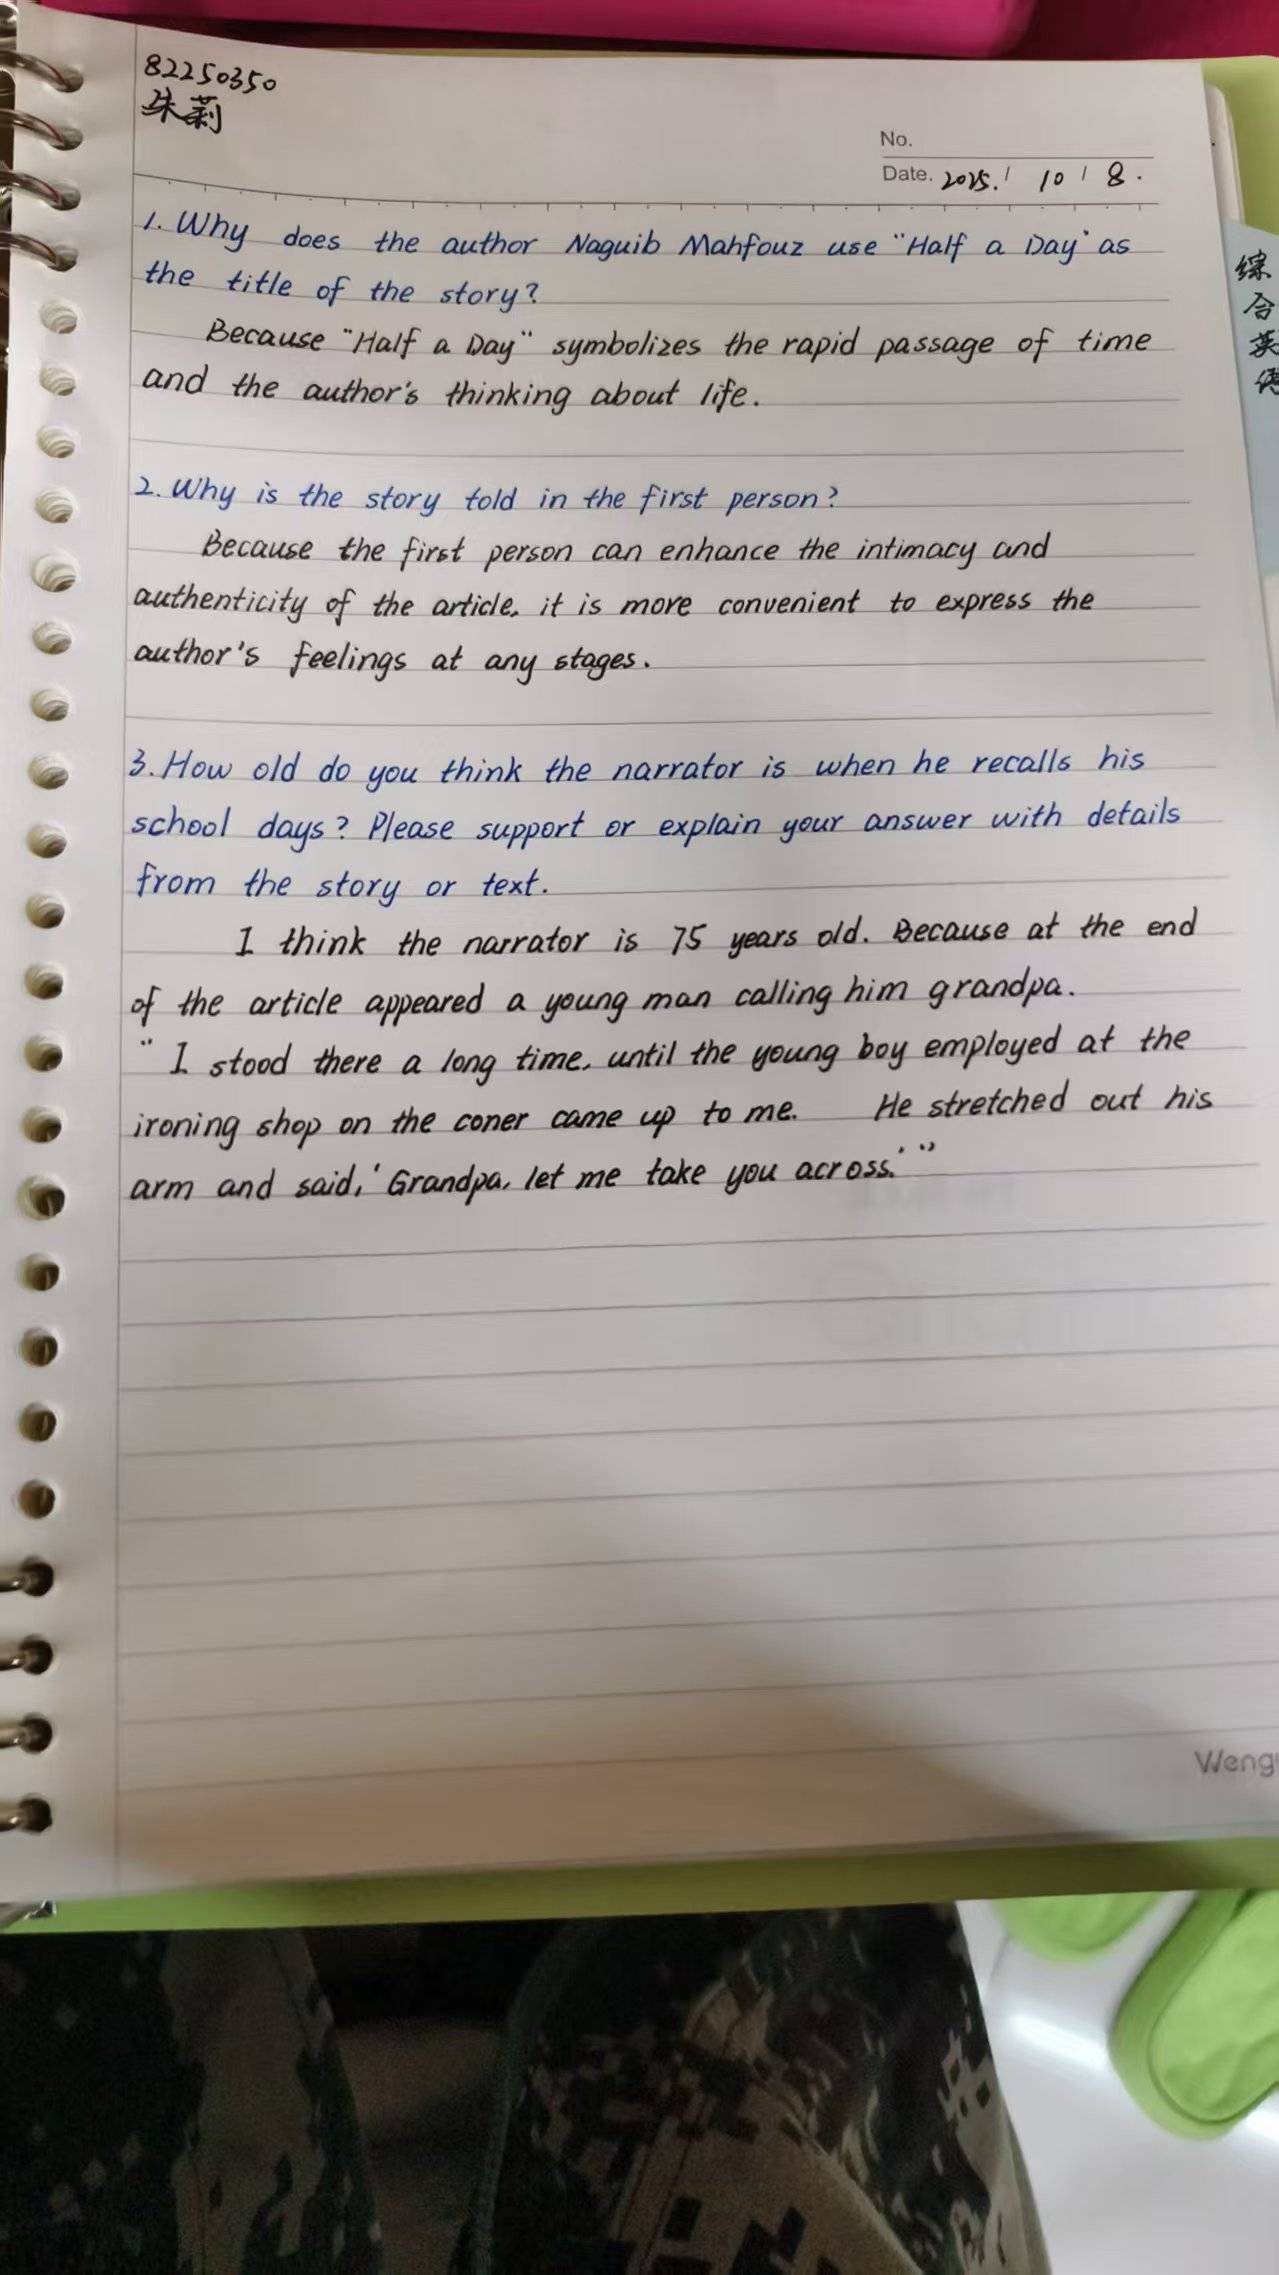 82250350
朱莉
No.
Date. 2025. / 10 / 8 .
1. Why does the author Naguib Mahfouz use "Half a Day" as
the title of the story?
Because "Half a Day" symbolizes the rapid passage of time
and the author's thinking about life.
2. Why is the story told in the first person?
Because the first person can enhance the intimacy and
authenticity of the article, it is more convenient to express the
author's feelings at any stages.
3. How old do you think the narrator is when he recalls his
school days? Please support or explain your answer with details
from the story or text.
I think the narrator is 75 years old. Because at the end
of the article appeared a young man calling him grandpa.
" I stood there a long time, until the young boy employed at the
ironing shop on the coner came up to me. He stretched out his
arm and said, 'Grandpa, let me take you across.' "
综
合
英
Weng